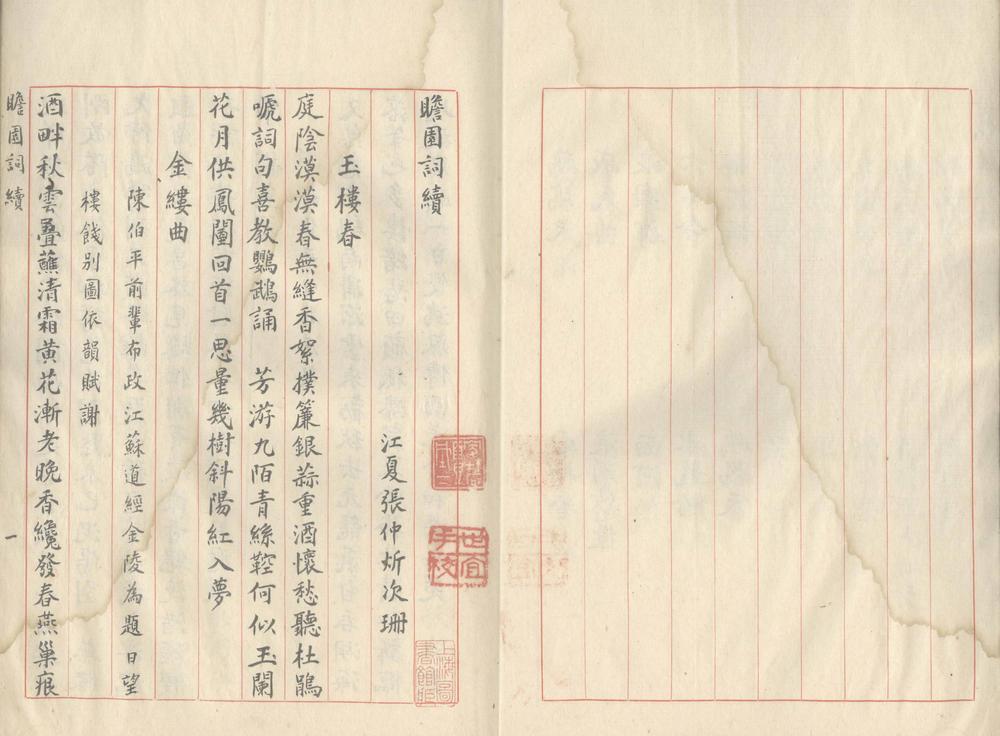 瞻園詞續
江夏張仲炘次珊
玉樓春
庭陰漠漠春無縫香絮撲簾銀蒜重酒懷愁聽杜鵑
嗁詞句喜教鸚鵡誦　芳游九陌青絲鞚何似玉闌
花月供鳳闉回首一思量幾樹斜陽紅入夢
金縷曲
陳伯平前輩布政江蘇道經金陵為題日望
樓餞別圖依韻賦謝
酒畔秋雲疊蘸清霜黃花漸老晚香纔發春燕巢痕
瞻園詞續
一
世宜
手校